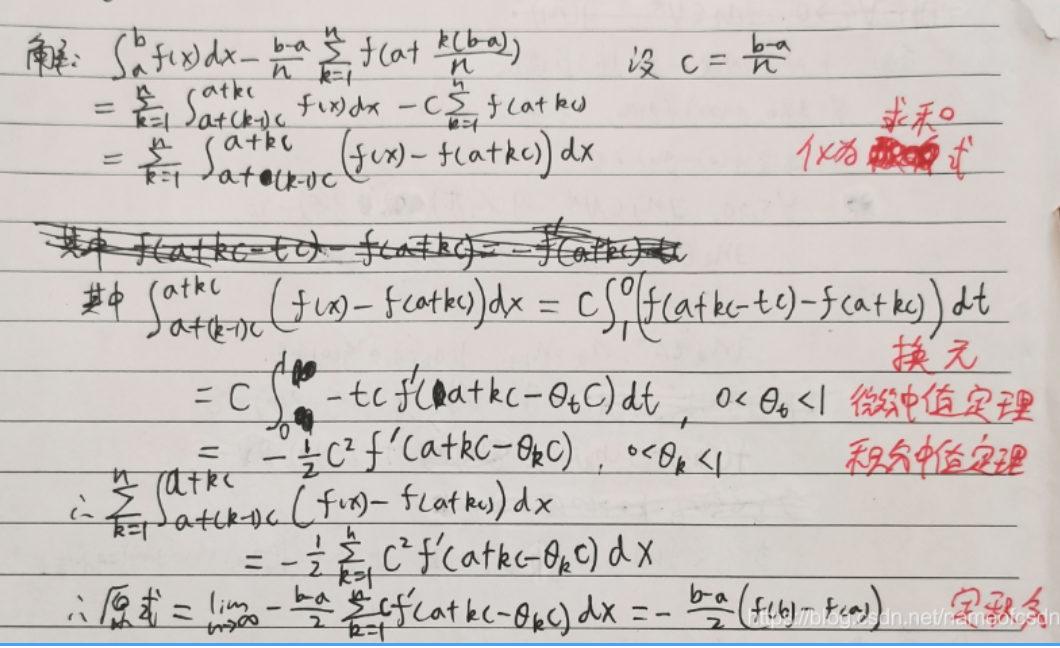 解: ∫_a^b f(x)dx - (b-a)/n ∑_{k=1}^n f(a+ k(b-a)/n) 设 c = (b-a)/n
= ∑_{k=1}^n ∫_{a+(k-1)c}^{a+kc} f(x)dx - c∑_{k=1}^n f(a+kc)
= ∑_{k=1}^n ∫_{a+(k-1)c}^{a+kc} (f(x) - f(a+kc)) dx 求和 式
其中 f(a+kc-tc) - f(a+kc) = -f'(a+kc) tc
其中 ∫_{a+(k-1)c}^{a+kc} (f(x) - f(a+kc))dx = C∫_1^0 (f(a+kc-tc) - f(a+kc)) dt
换元
= C ∫_0^1 -tc f'(a+kc-θ_tC) dt 0<θ_t<1 微分中值定理
= -1/2 C² f'(a+kc-θ_kC), 0<θ_k<1 积分中值定理
∴ ∑_{k=1}^n ∫_{a+(k-1)c}^{a+kc} (f(x) - f(a+kc)) dx
= -1/2 ∑_{k=1}^n C² f'(a+kc-θ_kC) dx
∴ 原式 = lim_{n→∞} - (b-a)/2 ∑_{k=1}^n cf'(a+kc-θ_kC) dx = - (b-a)/2 (f(b) - f(a)) 定积分
https://blog.csdn.net/nameofcsdn